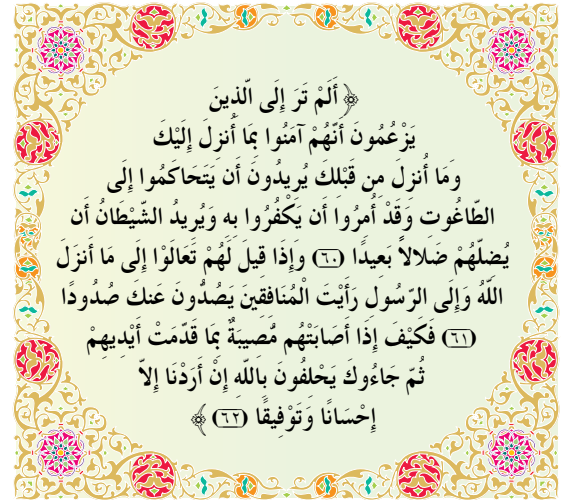 ﴿أَلَمْ تَرَ إِلَى الّذِينَ
يَزْعُمُونَ أَنّهُمْ آمَنُوا بِمَا أُنزِلَ إِلَيْكَ
وَمَا أُنزِلَ مِن قَبْلِكَ يُرِيدُونَ أَن يَتَحَاكَمُوا إِلَى
الطّاغُوتِ وَقَدْ أُمِرُوا أَن يَكْفُرُوا بِهِ وَيُرِيدُ الشّيْطَانُ أَن
يُضِلّهُمْ ضَلالاً بَعِيدًا (٦٠) وَإِذَا قِيلَ لَهُمْ تَعَالَوْا إِلَى مَا أَنزَلَ
اللّهُ وَإِلَى الرّسُولِ رَأَيْتَ الْمُنَافِقِينَ يَصُدُّونَ عَنكَ صُدُودًا
(٦١) فَكَيْفَ إِذَا أَصَابَتْهُم مُّصِيبَةٌ بِمَا قَدّمَتْ أَيْدِيهِمْ
ثُمّ جَاءُوكَ يَحْلِفُونَ بِاللّهِ إِنْ أَرَدْنَا إِلاّ
إِحْسَانًا وَتَوْفِيقًا (٦٢) ﴾